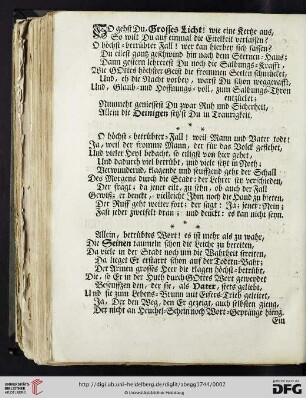 SO gehst Du, Grosses Licht! wie eine Kertze aus,
So wilt Du auf einmal die Eitelkeit verlassen?
O höchst-betrübter Fall! wer kan hierbey sich fassen?
Du eilest gantz geschwind hin nach dem Sternen-Haus:
Dann gestern lehretest Du noch die Salbungs-Krafft,
Wie GOttes höchster Geist die frommen Seelen schmücket,
Und, eh die Nacht vorbey, warst Du schon weggerafft,
Und, Glaub- und Hoffnungs-voll, zum Salbungs-Thron
entzücket;
Nunmehr geniessest Du zwar Ruh und Sicherheit,
Allein die Deinigen setz'st Du in Traurigkeit.
* * *
O höchst-betrübter-Fall! weil Mann und Vater todt!
Ja, weil der fromme Mann, der für das Volck gestehet,
Und vieler Heyl bedacht, so eiligst von hier gehet,
Und dadurch viel betrübt, und viele setzt in Noth;
Verwundernd, klagende und seuffzend geht der Schall
Des Morgens durch die Stadt: der Lehrer ist verschieden,
Der fragt: da jener eilt, zu sehn, ob auch der Fall
Gewiß; er denckt, vielleicht ihm noch die Hand zu bieten,
Der Ruff geht weiter fort; der sagt: Ja; jener: Nein;
Fast jeder zweifelt dran; und denckt: es kan nicht seyn.
* * *
Allein, betrübtes Wort! es ist mehr als zu wahr,
Die Seinen taumeln schon die Leiche zu bereiten,
Da viele in der Stadt noch um die Wahrheit streiten,
Da lieget Er erstarrt schon auf der Todten-Bahr:
Der Armen grosses Heer die klagen höchst-betrübt,
Die, so Er in der Huth durch GOttes Wort geweydet
Beseuffzen den, der sie, als Vater, stets geliebt,
Und sie zum Lebens-Brunn mit Eifers-Trieb geleitet,
Ja, Der den Weg, den Er gezeigt, auch selbsten gieng,
Der nicht an Heuchel-Schein noch Wort-Gepränge hieng.
Ein
UNIVERSITÄTS-
BIBLIOTHEK
HEIDELBERG
http://digi.ub.uni-heidelberg.de/diglit/sbegg1744/0002
© Universitätsbibliothek Heidelberg
DFG